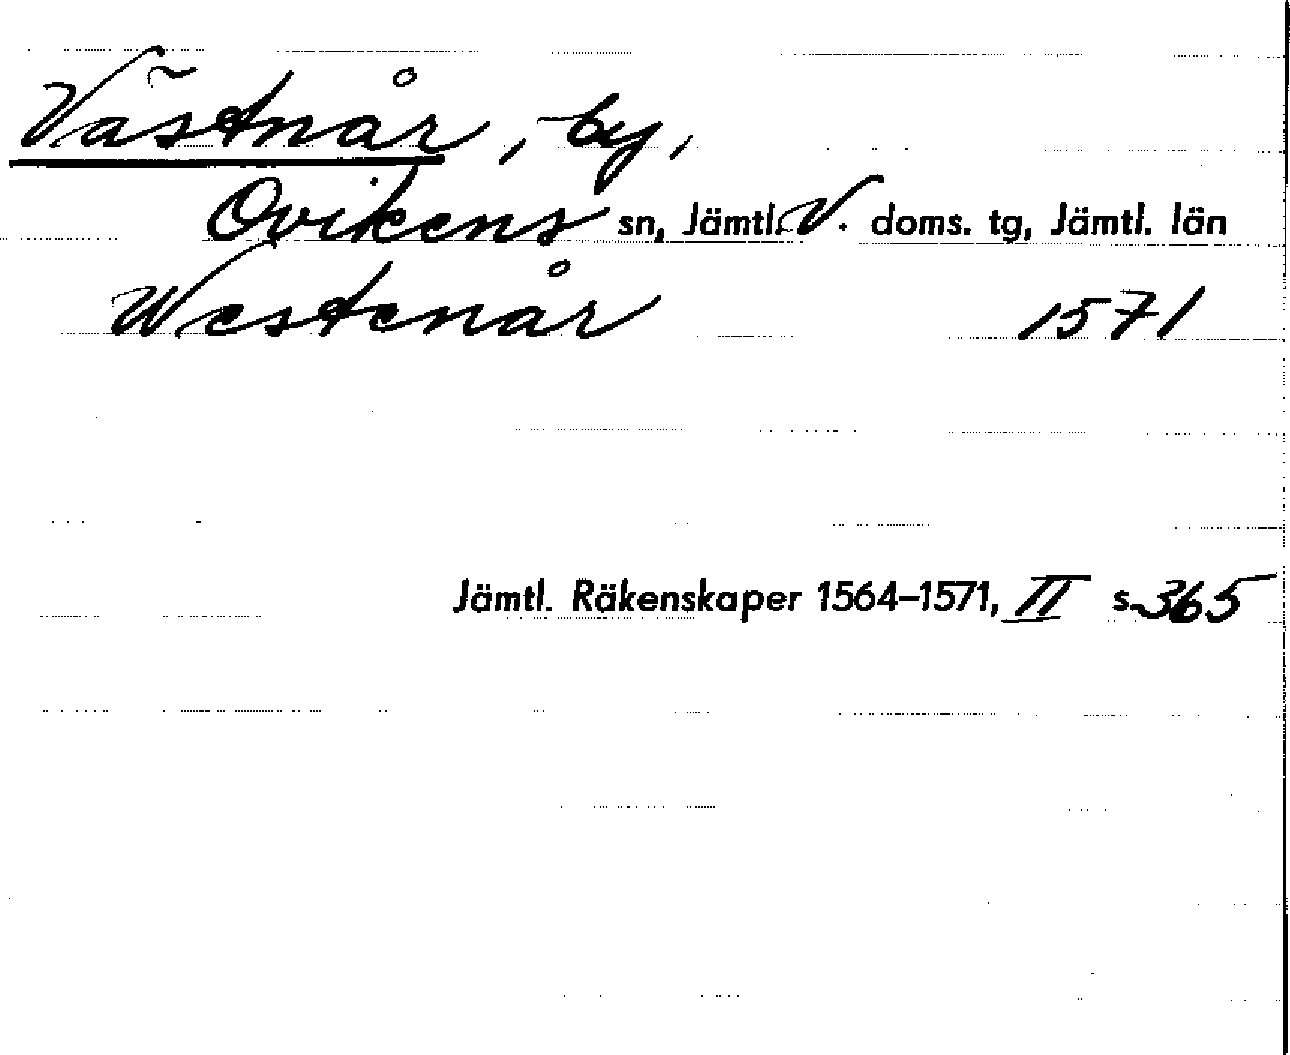 Västnår, by,
Ovikens sn, Jämtl. V. doms. tg, Jämtl. län
Westenår 1571
Jämtl. Räkenskaper 1564–1571, II s. 365